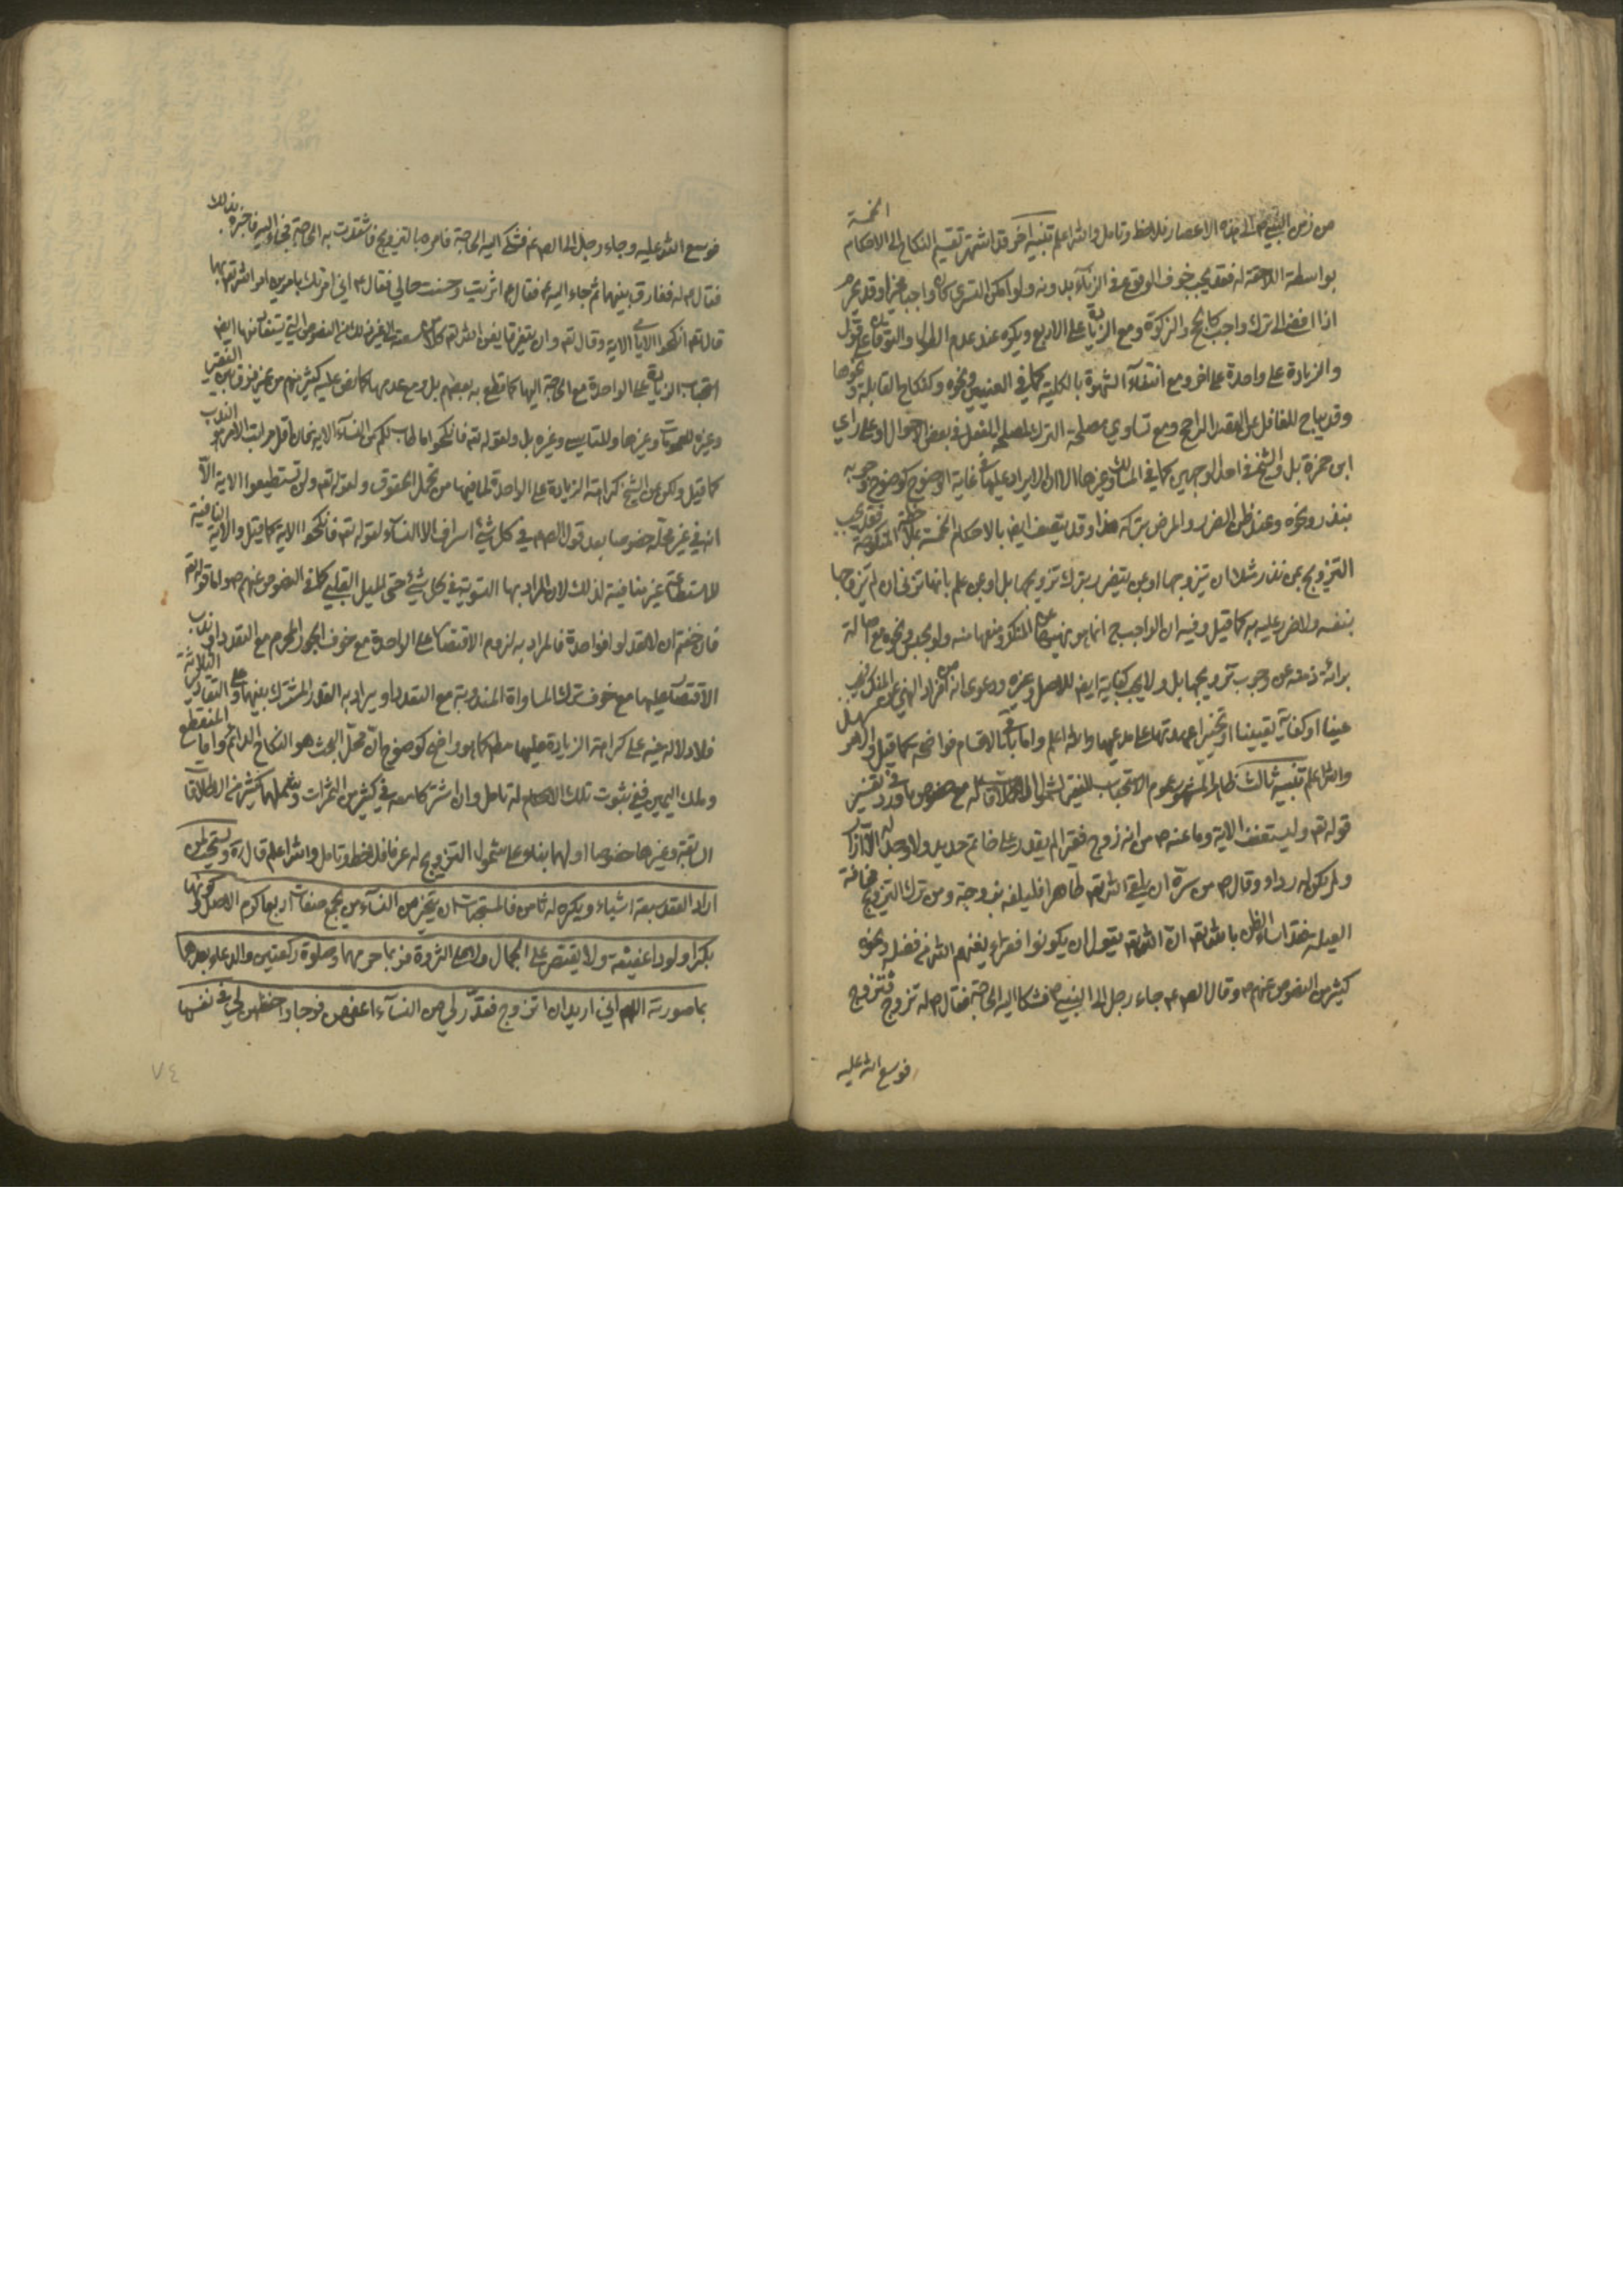 من زمن النبي ص الى هذه الاعصار فلاحظ وتامل والله اعلم تنبيه آخر قد اشتهر تقسيم النكاح الى الاحكام الخمسة
بواسطة اللاحقة له فقد يجب خوف الوقوع في الزنآء بدونه ولو امكن التسري كان واجبا مخيرا وقد يحرم
اذا افضى الى ترك واجب كالحج والزكوة ومع الزيادة على الاربع ويكره عند عدم الطول والتوقان على قول
والزيادة على واحدة على اخر ومع انتفآء الشهوة بالكلية كما في العنين ونحوه وكنكاح القابلة ونحوها
وقد يباح للغافل عن القصد الراجح ومع تساوي مصلحة الترك لمصلحة الفعل في بعض الاحوال او على راي
ابن حمزة بل والشيخ في احد الوجهين كما في المسالك وغيرها الا ان الايراد عليها في غاية الوضوح كوضوح وجوبه
بنذر ونحوه وعند ظن الضرر والمرض بتركه هذا وقد يتصف ايضا بالاحكام الخمسة المنكوحة فقد يجب
التزويج بمن نذر مثلا ان يتزوجها او بمن يتضرر بترك تزويجها بل او بمن علم بانها تزني ان لم يتزوجها
بنفسه ولا ضرر عليه به كما قيل وفيه ان الواجب ح انما هو نهيها عن المنكر ومنعها منه ولو بحبس ونحوه مع اصالة
برائة ذمته عن وجوب تزويجها بل ولا يجب كفاية ايضا للاصل وغيره ودعوى انه من افراد النهي عن المنكر فيجب
عينا او كفاية تعيينا او تخييرا عهدتها على مدعيها والله اعلم واما باقي الاقسام فواضحة كما قيل والامر سهل
والله اعلم تنبيه ثالث ظاهر المشهور عموم الاستحباب للفقير لشمول الاطلاقات له مع خصوص ما ورد في تفسير
قوله تعم وليستعفف الاية وما عنه ص من انه زوج فقيرا لم يقدر على خاتم حديد ولا وجد له الا ازارا
ولم يكن له رداء وقال ص من سره ان يلقى الله تعم طاهرا فليلقه بزوجة ومن ترك التزويج مخافة
العيلة فقد اساء الظن بالله تعم ان الله تعم يقول ان يكونوا فقراء يغنهم الله من فضله ونحوه
كثير من النصوص عنهم ع وقال الص ع جاء رجل الى النبي ص فشكا اليه الحاجة فقال ص له تزوج فتزوج
فوسع الله عليه
فوسع الله عليه وجاء رجل الى الص ع فشكى اليه الحاجة فامره بالتزويج فاشتدت به الحاجة فجاء اليه فاخبره بذلك
فقال ع له ففارق بينهما ثم جاء اليه ع فقال اثريت وحسنت حالي فقال ع اني امرتك بامرين امر الله تعم بهما
قال تعم انكحوا الايامى الاية وقال تعم وان يتفرقا يغن الله تعم كلا من سعته الى غير ذلك من النصوص التي يستفاد منها ايضا
استحباب الزيادة على الواحدة مع الحاجة اليها كما قطع به بعضهم بل ومع عدمها كما نص عليه كثير منهم من غير فرق بين الفقير
وغيره للعمومات وغيرها وللتاسي وغيره بل ولقوله تعم فانكحوا ما طاب لكم من النسآء الاية فان اقل مراتب الامر هو الندب
كما قيل ولكن عن الشيخ كراهة الزيادة على الواحدة لما فيها من تحمل الحقوق ولقوله تعم ولن تستطيعوا الاية الا
انه في غير محله خصوصا بعد قول الص ع في كل شيء اسراف الا النسآء ولقوله تعم فانكحوا الاية كما قيل والاية النافية
للاستطاعة غير منافية لذلك لان المراد بها التسوية في كل شيء حتى الميل القلبي كما في النصوص عنهم ع واما قوله تعم
فان خفتم ان لا تعدلوا فواحدة فالمراد به لزوم الاقتصار على الواحدة مع خوف الجور المحرم مع التعدد او ندب
الاقتصار عليها مع خوف ترك المساواة المندوبة مع التعدد او يراد به القدر المشترك بينهما وعلى التقادير الثلاثة
فلا دلالة فيه على كراهة الزيادة عليها مطلقا كما هو واضح كوضوح ان محل البحث هو النكاح الدائم واما المنقطع
وملك اليمين ففي ثبوت تلك الاحكام له تامل وان اشتركا معه في كثير من الثمرات وشملهما كثير من الاطلاقات
السابقة وغيرها خصوصا اولهما بناء على شمول التزويج له عرفا فلاحظ وتامل والله اعلم قال ره ويستحب لمن
اراد العقد سبعة اشياء ويكره له ثامن فالمستحبات ان يتخير من النسآء من تجمع صفات اربعا كرم الاصل وكونها
بكرا ولودا عفيفة ولا يقتصر على الجمال ولا على الثروة فربما حرمهما وصلوة ركعتين والدعاء بعدها
بما صورته اللهم اني اريد ان اتزوج فقدر لي من النسآء اعفهن فرجا واحفظهن لي في نفسها
٧٤